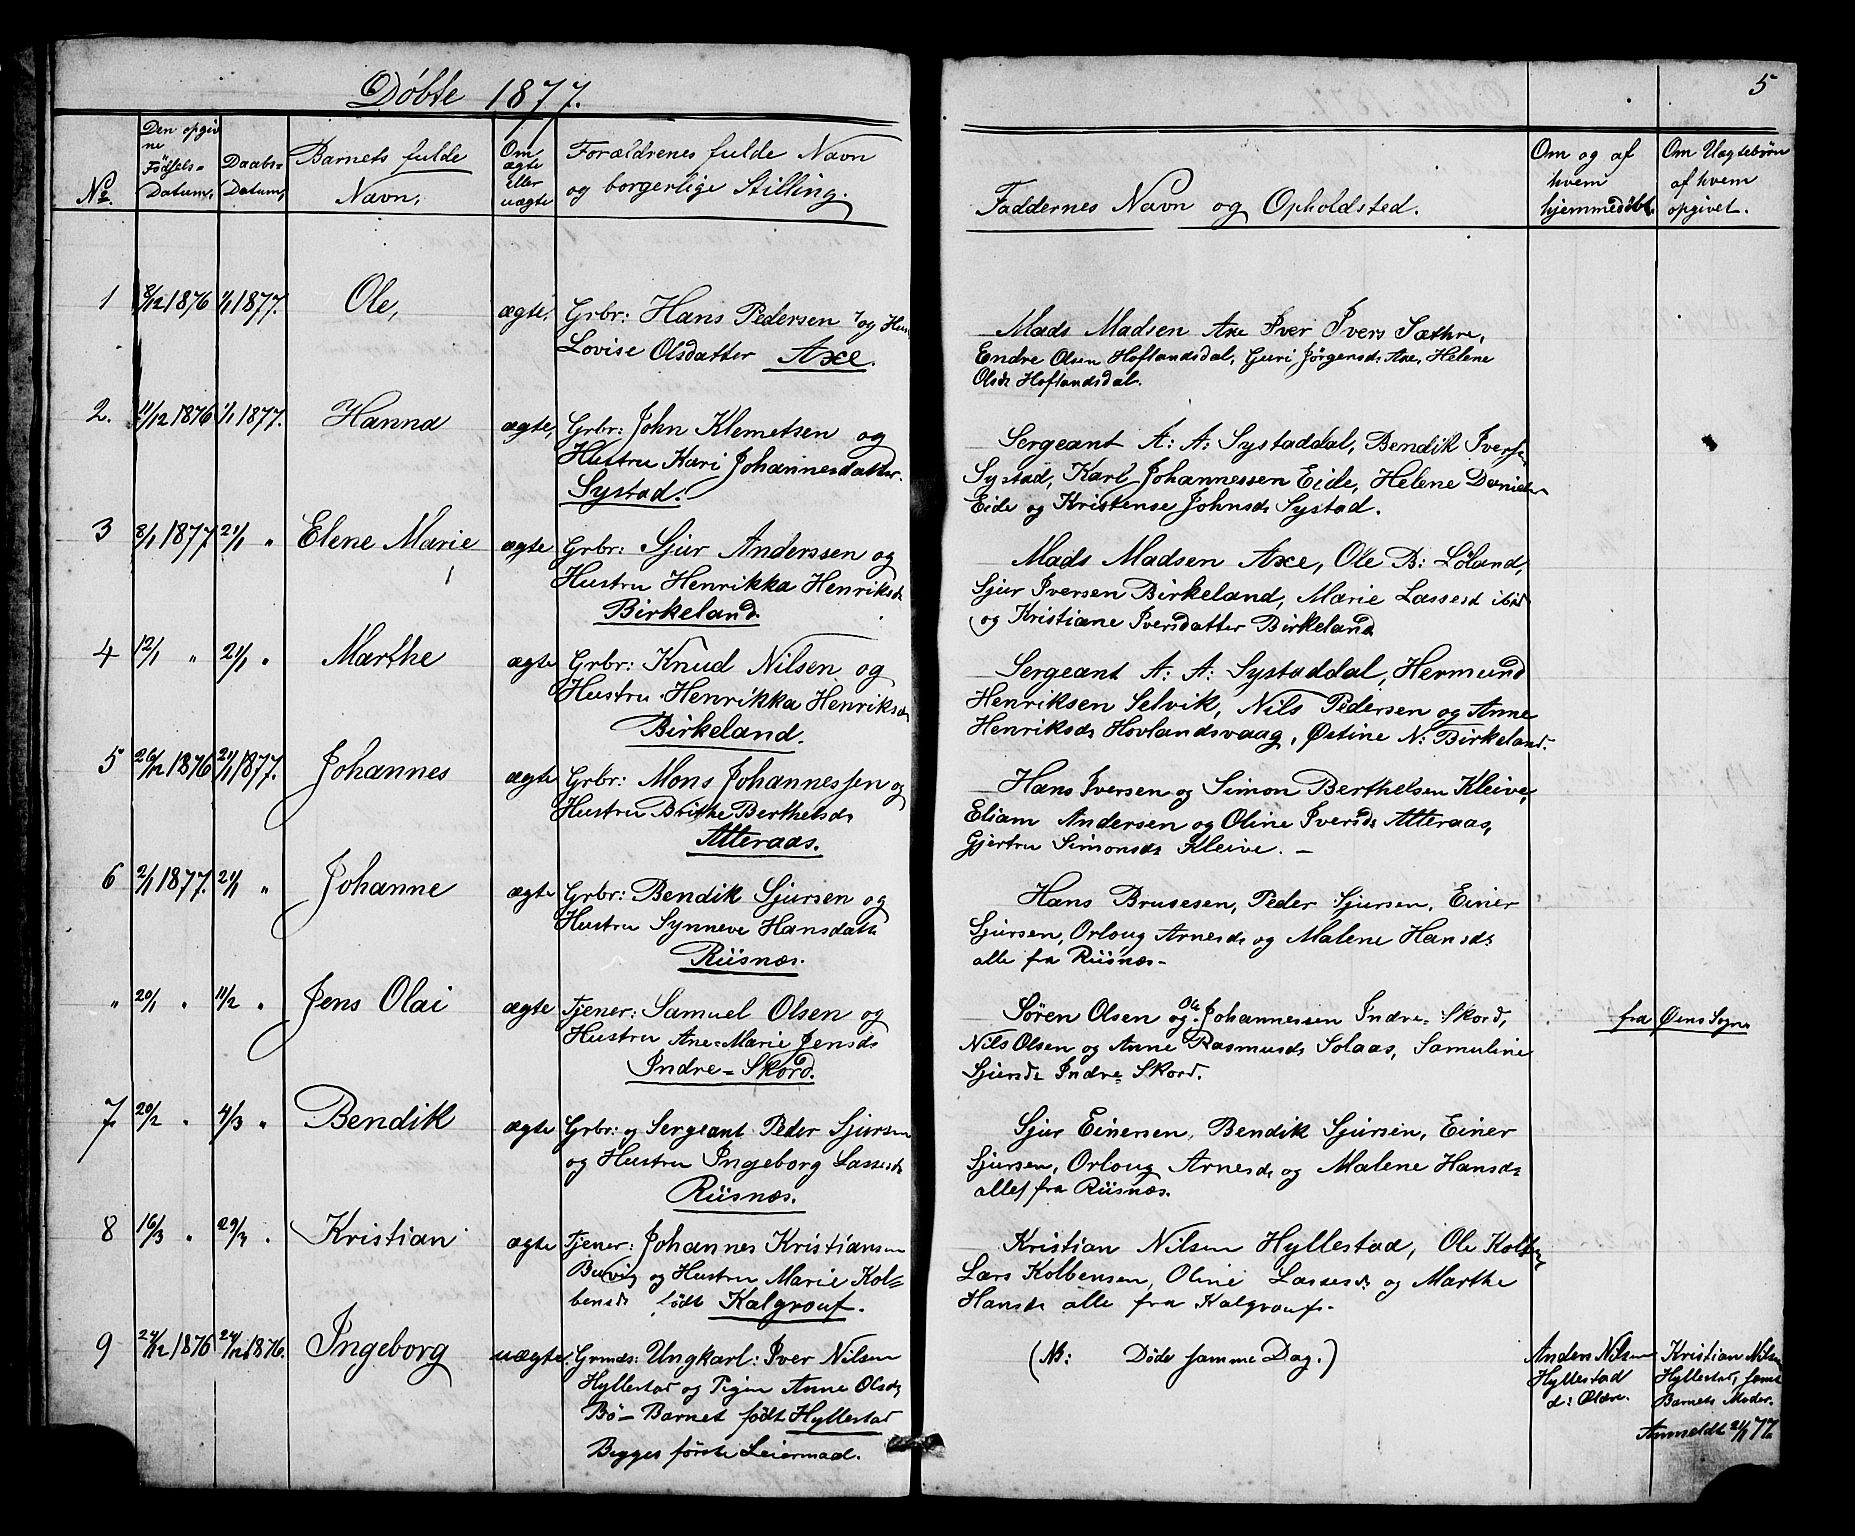 Döbte 1877.
5
No.
Den opgivne Fødsels-Datum,
Daabs-Datum,
Barnets fulde Navn,
Om ægte eller uægte
Forældrenes fulde Navn og borgerlige Stilling.
Faddernes Navn og Opholdsted.
Om og af hvem hjemmedöbt.
Om Uægtebørn af hvem opgivet.
1 8/12 1876 1/1 1877. Ole, ægte, Grbr: Hans Pedersen og Hus
Lovise Olsdatter Axe.
Mads Madsen Axe Iver Ivers Sæthre,
Endre Olsen Hoflandsdal, Guri Jörgensd: Axe, Helene
Olsd: Hoflandsdal.
2. 11/12 1876 1/1 1877. Hanna ægte, Grbr: John Klemetsen og
Hustru Kari Johannesdatter
Systad.
Sergeant A: A: Systaddal, Bendik Ivers
Systad, Karl Johannessen Eide, Helene Daniels
Eide og Kristense Johnsd: Systad.
3 8/1 1877. 21/1 " Elene Marie ægte Grbr: Sjur Anderssen og
Hustru Henrikka Henriksd:
Birkeland.
Mads Madsen Axe, Ole B: Löland,
Sjur Iversen Birkeland, Marie Lassesd ibid
og Kristiane Iversdatter Birkeland
4 12/1 " 21/1 " Marthe ægte Grbr: Knud Nilsen og
Hustru Henrikka Henriksd:
Birkeland.
Sergeant A: A: Systaddal, Hermund
Henriksen Selvik, Nils Pedersen og Anne
Henriksd: Hovlandsvaag, Østine N: Birkeland.
5 26/12 1876 21/1 1877. Johannes ægte Grbr: Mons Johannessen og
Hustru Britke Berthelsd:
Atteraas.
Hans Iversen og Simon Berthelsen Kleive,
Eliam Andersen og Oline Iversd: Atteraas,
Gjertru Simonsd: Kleive. –
6 2/1 1877. 21/1 " Johanne ægte Grbr: Bendik Sjursen og
Hustru Synneve Hansdatt:
Riisnæs.
Hans Brusesen, Peder Sjursen, Einer
Sjursen, Orloug Arnesd: og Malene Hansd:
alle fra Riisnæs –
" 20/1 " 11/2 " Jens Olai ægte Tjener: Samuel Olsen og
Hustru Ane-Marie Jensd:
Indre-Skord.
Sören Olsen og Ole Johannessen Indre-Skord,
Nils Olsen og Anne Rasmusd: Solaas, Samuline
Sjursd: Indre-Skord.
fra Øens Sogn
7. 20/2 " 4/3 " Bendik ægte Grbr: og Sergeant Peder Sjursen
og Hustru Ingeborg Lassesd:
Riisnæs.
Sjur Einersen, Bendik Sjursen, Einer
Sjursen, Orloug Arnesd: og Malene Hansd:
alle fra Riisnæs.
8 16/3 " 29/3 " Kristian ægte Tjener: Johannes Kristiansen
og Hustru Marie Kol-
bensd: født Kalgrouf.
Kristian Nilsen Hyllestad, Ole Kolbens
Lars Kolbensen, Oline Lassesd: og Marthe
Hansd: alle fra Kalgrouf. –
9 24/12 1876 24/12 1876. Ingeborg uægte, Grmds: Ungkarl: Iver Nilsen
Hyllestad og Pigen Anne Olsd:
Bö – Barnet født Hyllestad
Begges förste Leiermaal.
(NB: Døde samme Dag.)
Anden Nilsen
Hyllestad
d: Ældre.
Kristian Nilsen
Hyllestad, samt
Barnets Moder.
Anmeldt 21/1 77.